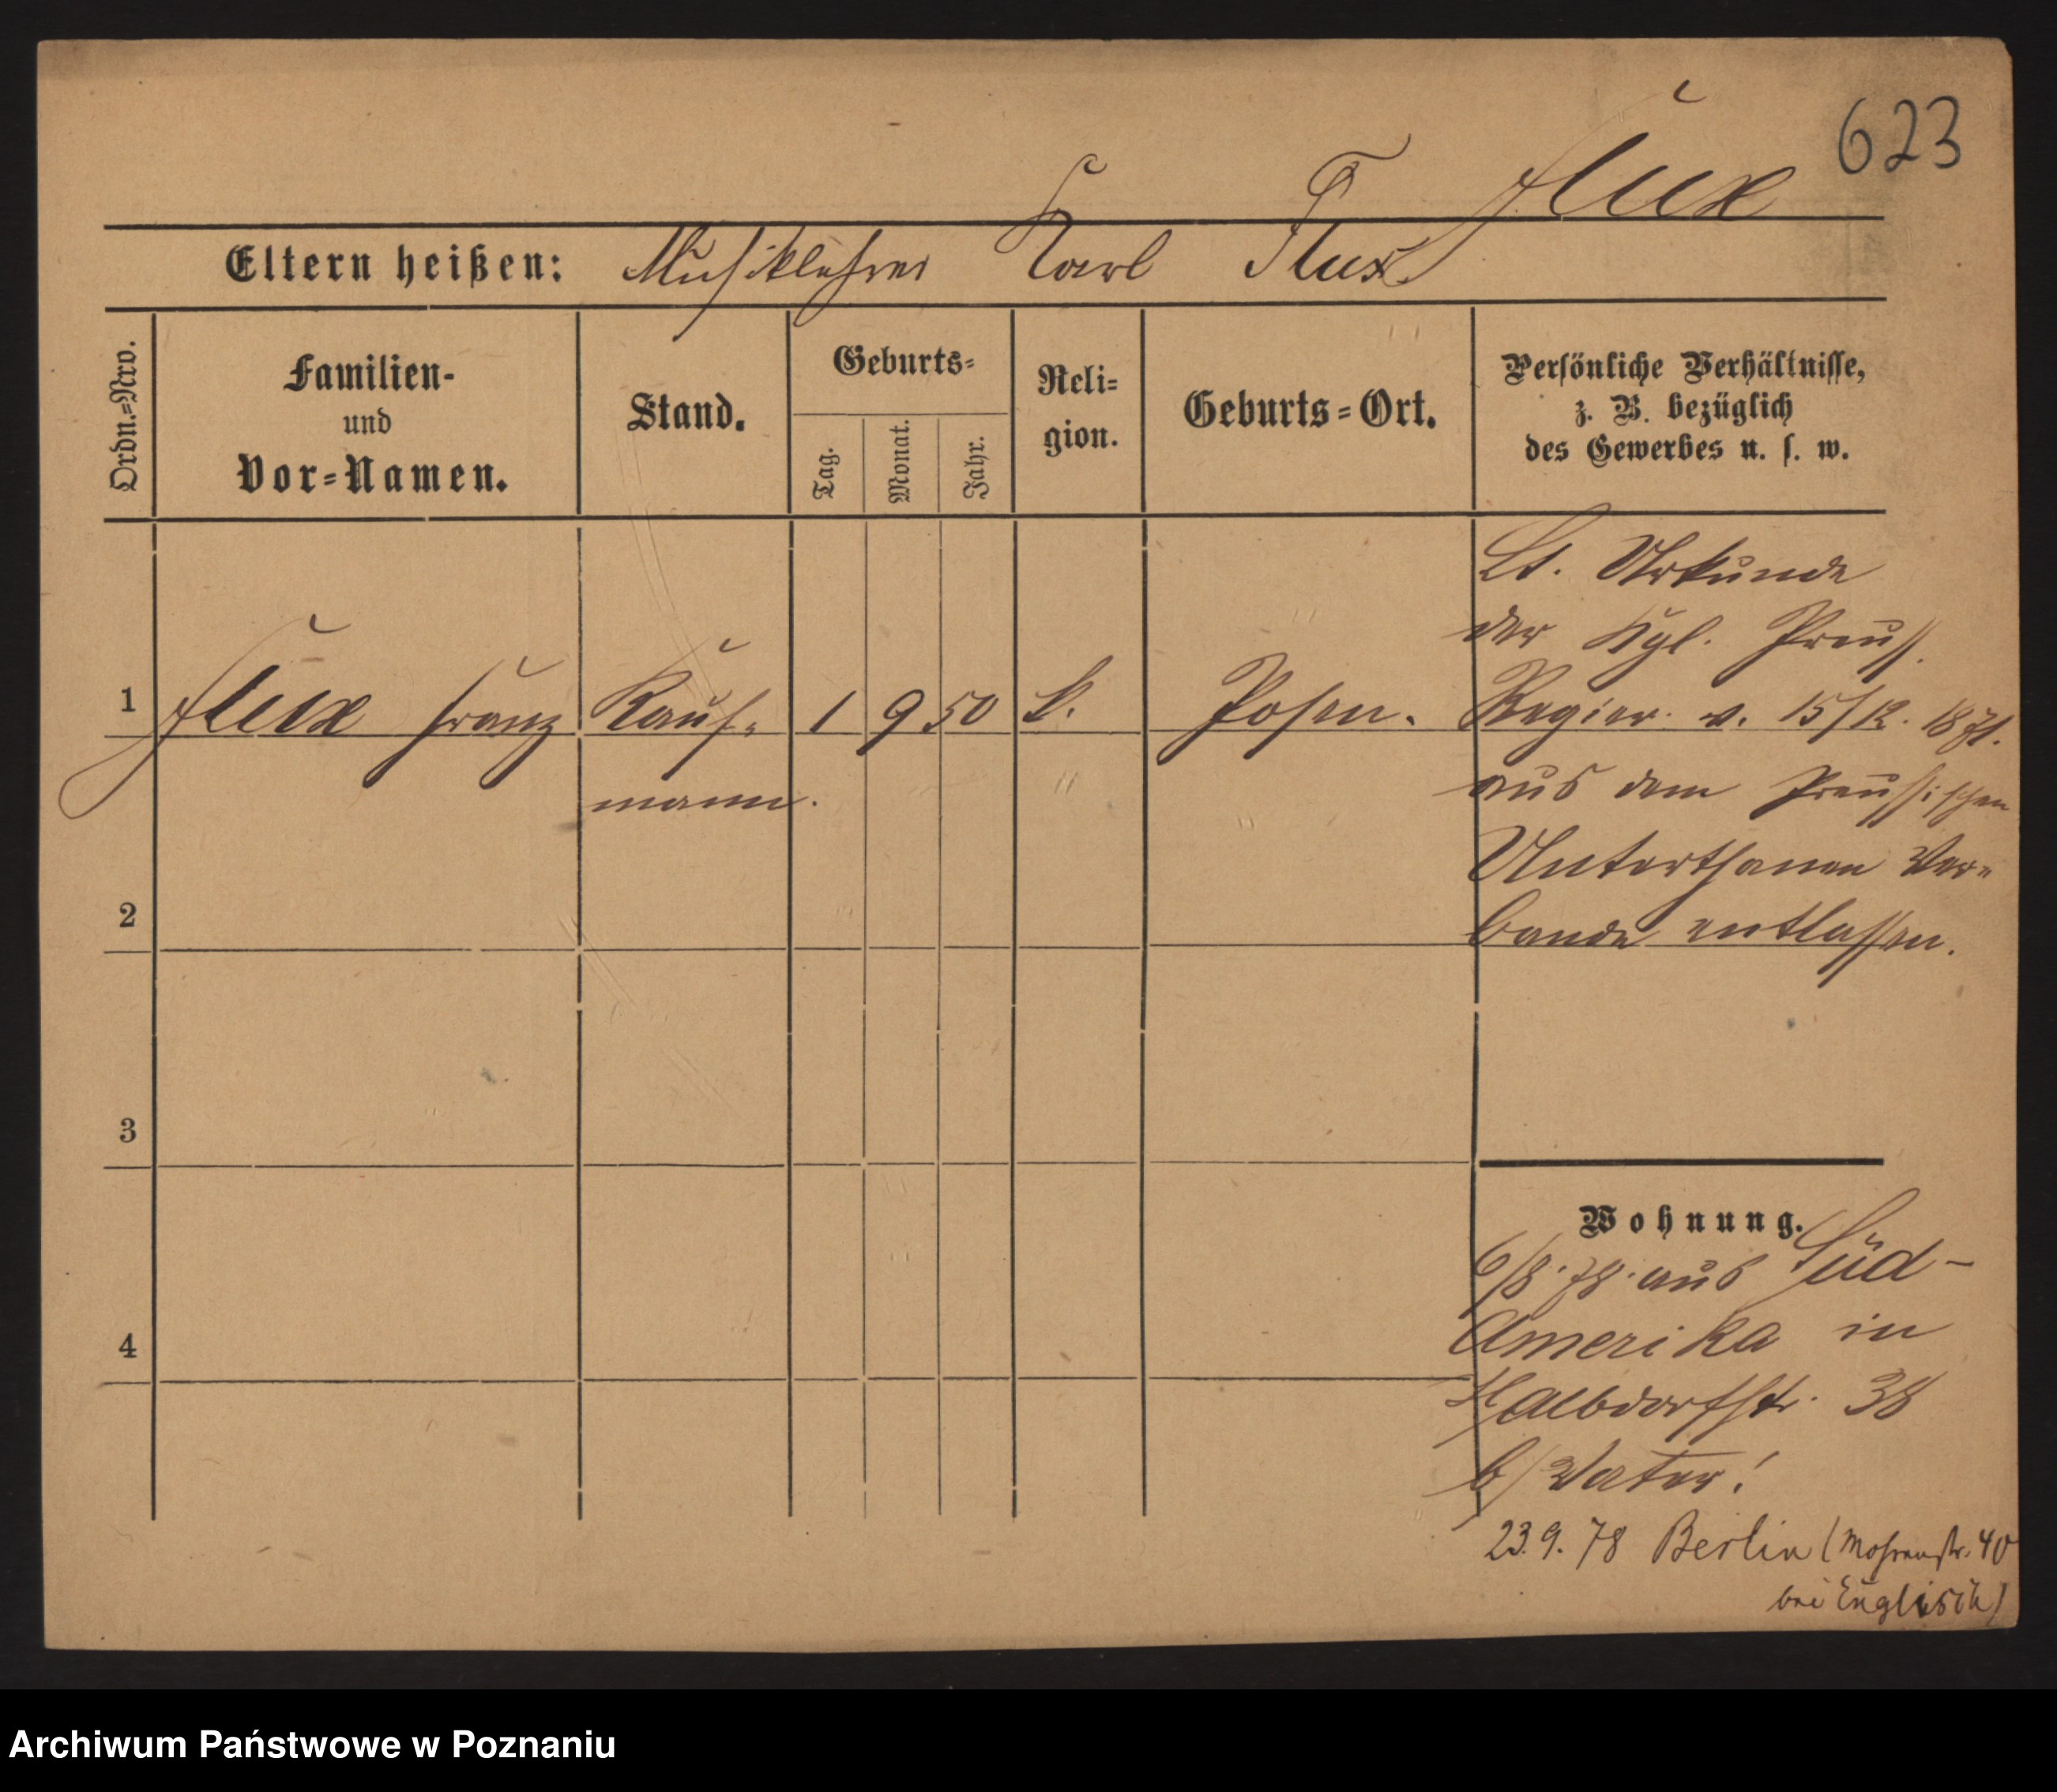 623
Flux
Eltern heißen: Musiklehrer Karl Flux.
Ordn.=Nro.
Familien-
und
Vor=Namen.
Stand.
Geburts=
Tag.
Monat.
Jahr.
Reli=
gion.
Geburts=Ort.
Persönliche Verhältnisse,
z. B. bezüglich
des Gewerbes u. s. w.
1 Flux Franz Kauf=
mann.
1 9 50 k. Posen.
Lt. Urkunde
der Kgl. Preuß.
Regier. v. 15/12. 1871.
aus dem Preußischen
Unterthanen Ver=
bande entlassen.
2
3
4
Wohnung.
6/8. 78. aus Süd-
Amerika in
Halbdorfstr. 38
b/Vater!
23.9. 78 Berlin (Mohrenstr. 40
bei Englisch)
Archiwum Państwowe w Poznaniu